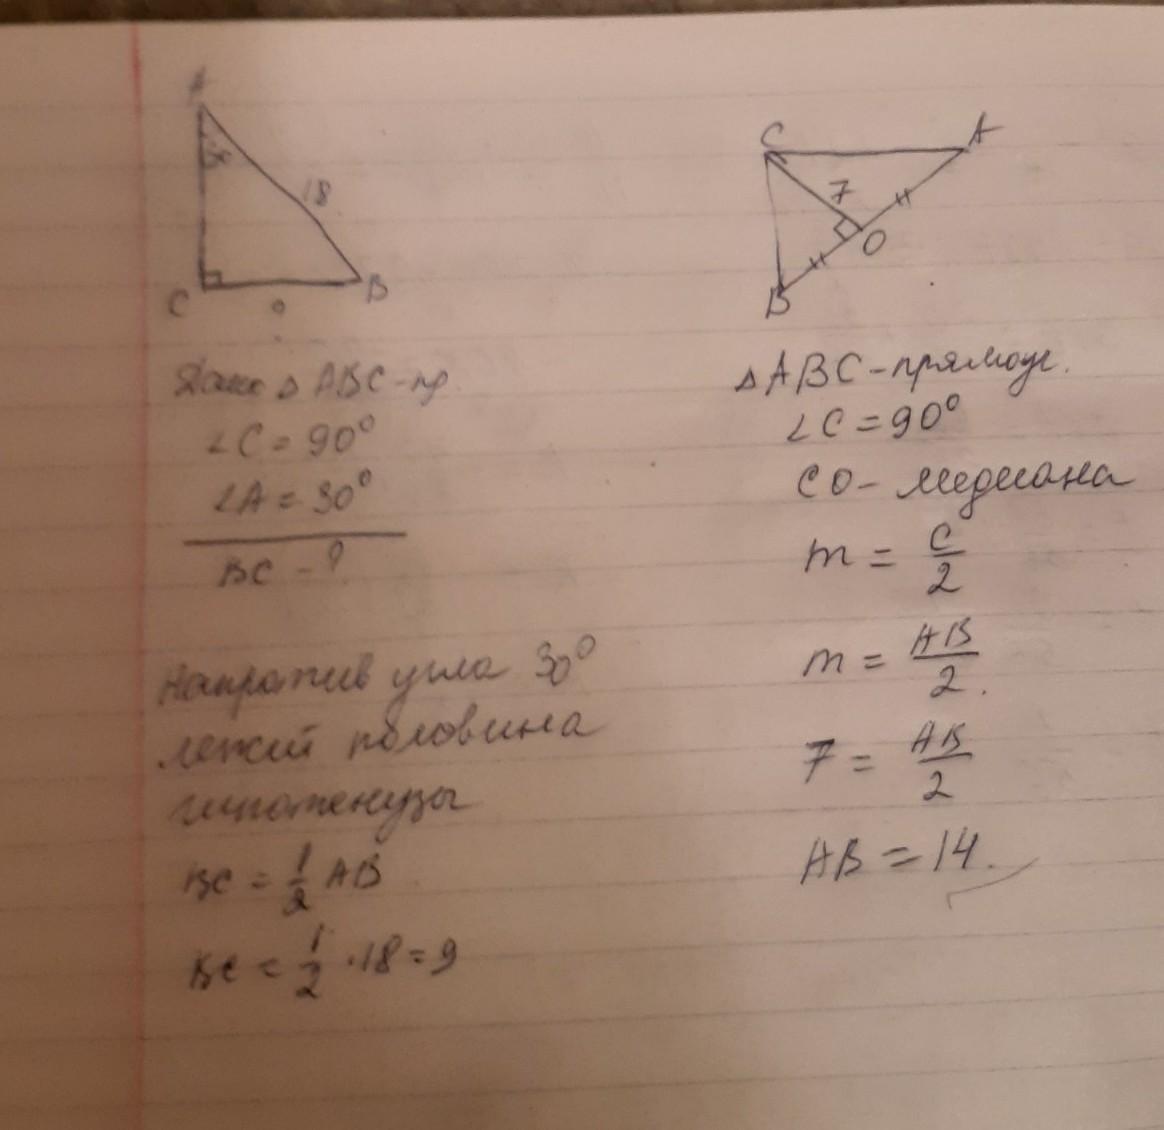 A
18
C
B
?
Дано △ ABC-пр.
∠C = 90°
∠A = 30°
BC - ?
Напротив угла 30°
лежит половина
гипотенузы
BC = 1/2 AB
BC = 1/2 · 18 = 9
C
A
7
O
B
△ ABC-прямоуг.
∠C = 90°
CO - медиана
m = c/2
m = AB/2.
7 = AB/2
AB = 14.